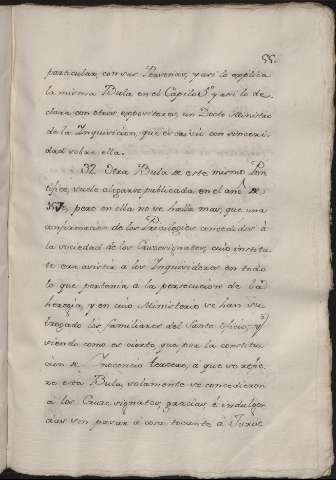 55.
particular, con sus Personas, y asi lo explica
la misma Bula en el Capitulo 5º y asi lo de-
clara con otros expositores, un Docto Ministro
de la Inquisicion, que escrivió con sinceri-
dad sobre ella.
32. Otra Bula de este mismo Pon-
tifice, suele alegarse publicada en el año de
pero en ella no se halla mas, que una
confirmacion de los Privilegios concedidos à
la sociedad de los Crusesignatos, cuio institu-
to era asistir à los Inquisidores en todo
lo que pertenia à la persecucion de la
heregia, y en cuio Ministerio se han su-
brogado los familiares del Santo Oficio, y
siendo como es cierto que por la constitu-
cion de Inocencio tercero, à que se refie-
re esta Bula, solamente se concedieron
à los Crucesignatos, gracias, è indulgen-
cias sin pasar à cosa tocante à Juris-